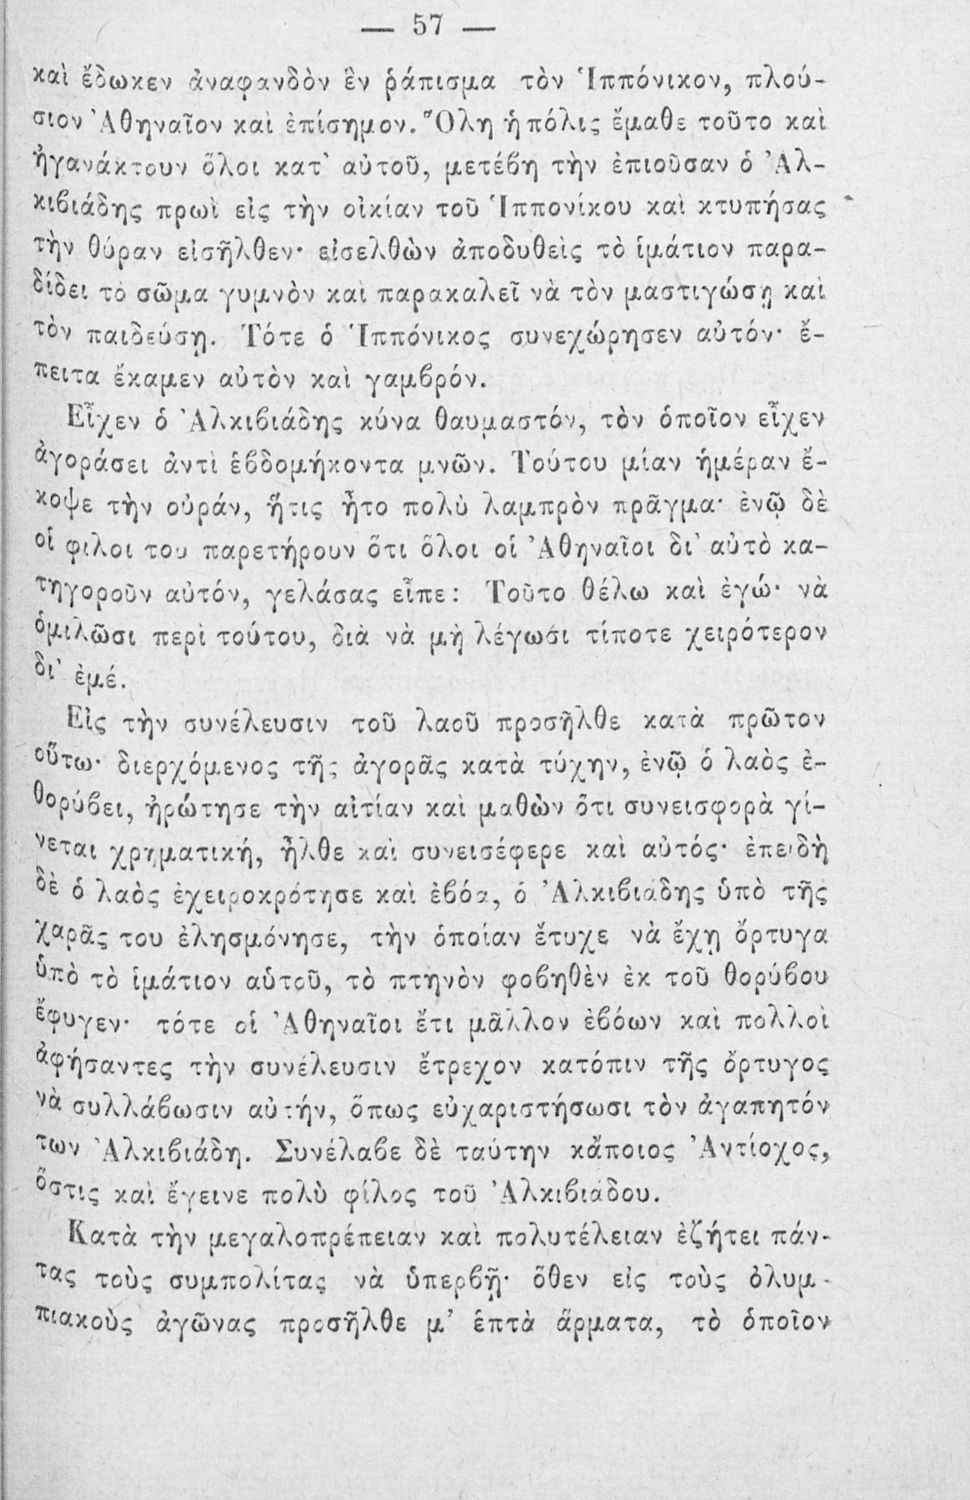 — 57 —
καὶ ἔδωκεν ἀναφανδὸν ἓν ῥάπισμα τὸν Ἱππόνικον, πλού-
σιον Ἀθηναῖον καὶ ἐπίσημον. Ὅλη ἡ πόλις ἔμαθε τοῦτο καὶ
ἠγανάκτουν ὅλοι κατ' αὐτοῦ, μετέβη τὴν ἐπιοῦσαν ὁ Ἀλ-
κιβιάδης πρωὶ εἰς τὴν οἰκίαν τοῦ Ἱππονίκου καὶ κτυπήσας
τὴν θύραν εἰσῆλθεν· εἰσελθὼν ἀποδυθεὶς τὸ ἱμάτιον παρα-
δίδει τὸ σῶμα γυμνὸν καὶ παρακαλεῖ νὰ τὸν μαστιγώσῃ καὶ
τὸν παιδεύσῃ. Τότε ὁ Ἱππόνικος συνεχώρησεν αὐτόν· ἔ-
πειτα ἔκαμεν αὐτὸν καὶ γαμβρόν.
Εἶχεν ὁ Ἀλκιβιάδης κύνα θαυμαστόν, τὸν ὁποῖον εἶχεν
ἀγοράσει ἀντὶ ἑβδομήκοντα μνῶν. Τούτου μίαν ἡμέραν ἔ-
κοψε τὴν οὐράν, ἥτις ἦτο πολὺ λαμπρὸν πρᾶγμα· ἐνῷ δὲ
οἱ φίλοι του παρετήρουν ὅτι ὅλοι οἱ Ἀθηναῖοι δι' αὐτὸ κα-
τηγοροῦν αὐτόν, γελάσας εἶπε: Τοῦτο θέλω καὶ ἐγώ· νὰ
ὁμιλῶσι περὶ τούτου, διὰ νὰ μὴ λέγωσι τίποτε χειρότερον
δι' ἐμέ.
Εἰς τὴν συνέλευσιν τοῦ λαοῦ προσῆλθε κατὰ πρῶτον
οὕτω· διερχόμενος τῆς ἀγορᾶς κατὰ τύχην, ἐνῷ ὁ λαὸς ἐ-
θορύβει, ἠρώτησε τὴν αἰτίαν καὶ μαθὼν ὅτι συνεισφορὰ γί-
νεται χρηματική, ἦλθε καὶ συνεισέφερε καὶ αὐτός· ἐπειδὴ
δὲ ὁ λαὸς ἐχειροκρότησε καὶ ἐβόα, ὁ Ἀλκιβιάδης ὑπὸ τῆς
χαρᾶς του ἐλησμόνησε, τὴν ὁποίαν ἔτυχε νὰ ἔχῃ ὄρτυγα
ὑπὸ τὸ ἱμάτιον αὑτοῦ, τὸ πτηνὸν φοβηθὲν ἐκ τοῦ θορύβου
ἔφυγεν· τότε οἱ Ἀθηναῖοι ἔτι μᾶλλον ἐβόων καὶ πολλοὶ
ἀφήσαντες τὴν συνέλευσιν ἔτρεχον κατόπιν τῆς ὄρτυγος
νὰ συλλάβωσιν αὐτήν, ὅπως εὐχαριστήσωσι τὸν ἀγαπητόν
των Ἀλκιβιάδη. Συνέλαβε δὲ ταύτην κἄποιος Ἀντίοχος,
ὅστις καὶ ἔγεινε πολὺ φίλος τοῦ Ἀλκιβιάδου.
Κατὰ τὴν μεγαλοπρέπειαν καὶ πολυτέλειαν ἐζήτει πάν-
τας τοὺς συμπολίτας νὰ ὑπερβῇ· ὅθεν εἰς τοὺς ὀλυμ-
πιακοὺς ἀγῶνας προσῆλθε μ' ἑπτὰ ἅρματα, τὸ ὁποῖον